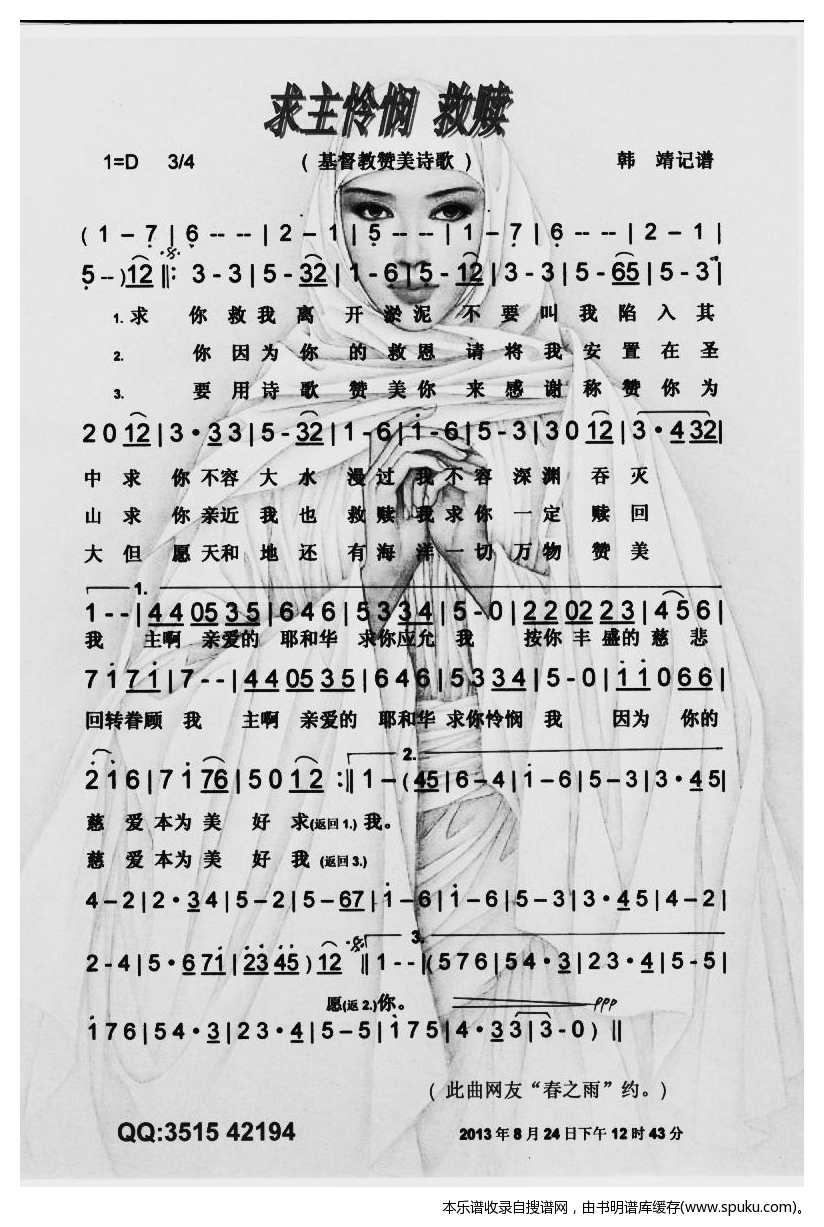 求主怜悯 救赎
1=D 3/4 (基督教赞美诗歌) 韩 靖记谱
( 1 – 7 | 6 -- -- | 2 – 1 | 5 -- -- | 1 – 7 | 6 -- -- | 2 – 1 |
5 -- ) 12 ‖: 3 - 3 | 5 - 32 | 1 - 6 | 5 - 12 | 3 - 3 | 5 - 65 | 5 - 3 |
1. 求 你 救 我 离 开 淤 泥 不 要 叫 我 陷 入 其
2. 你 因 为 你 的 救 恩 请 将 我 安 置 在 圣
3. 要 用 诗 歌 赞 美 你 来 感 谢 称 赞 你 为
2 0 12 | 3 • 3 3 | 5 - 32 | 1 - 6 | i - 6 | 5 - 3 | 3 0 12 | 3 • 4 32 |
中 求 你 不容 大 水 漫 过 我 不 容 深 渊 吞 灭
山 求 你 亲近 我 也 救 赎 我 求 你 一 定 赎 回
大 但 愿 天和 地 还 有 海 洋 一 切 万 物 赞 美
1.
1 - - | 4 4 05 3 5 | 6 4 6 | 5 3 34 | 5 - 0 | 2 2 02 2 3 | 4 5 6 |
我 主啊 亲爱的 耶和华 求你应允 我 按你 丰 盛的 慈 悲
7 i 7 i | 7 - - | 4 4 05 3 5 | 6 4 6 | 5 3 34 | 5 - 0 | i i 0 6 6 |
回转眷顾 我 主啊 亲爱的 耶和华 求你怜悯 我 因为 你的
2.
2 i 6 | 7 i 76 | 5 0 12 :‖ 1 – ( 45 | 6 – 4 | i – 6 | 5 – 3 | 3 • 4 5 |
慈 爱 本为 美 好 求(返回 1.) 我。
慈 爱 本为 美 好 我 (返回 3.)
4 – 2 | 2 • 3 4 | 5 – 2 | 5 – 67 | i – 6 | i – 6 | 5 – 3 | 3 • 4 5 | 4 – 2 |
3.
2 - 4 | 5 • 6 7i | 23 45 ) 12 ‖ 1 - - | ( 5 7 6 | 5 4 • 3 | 2 3 • 4 | 5 - 5 |
愿(返 2.)你。 ppp
i 7 6 | 5 4 • 3 | 2 3 • 4 | 5 – 5 | i 7 5 | 4 • 3 3 | 3 - 0 ) ‖
( 此曲网友“春之雨”约。)
QQ:3515 42194 2013 年 8 月 24 日下午 12 时 43 分
本乐谱收录自搜谱网，由书明谱库缓存(www.spuku.com)。